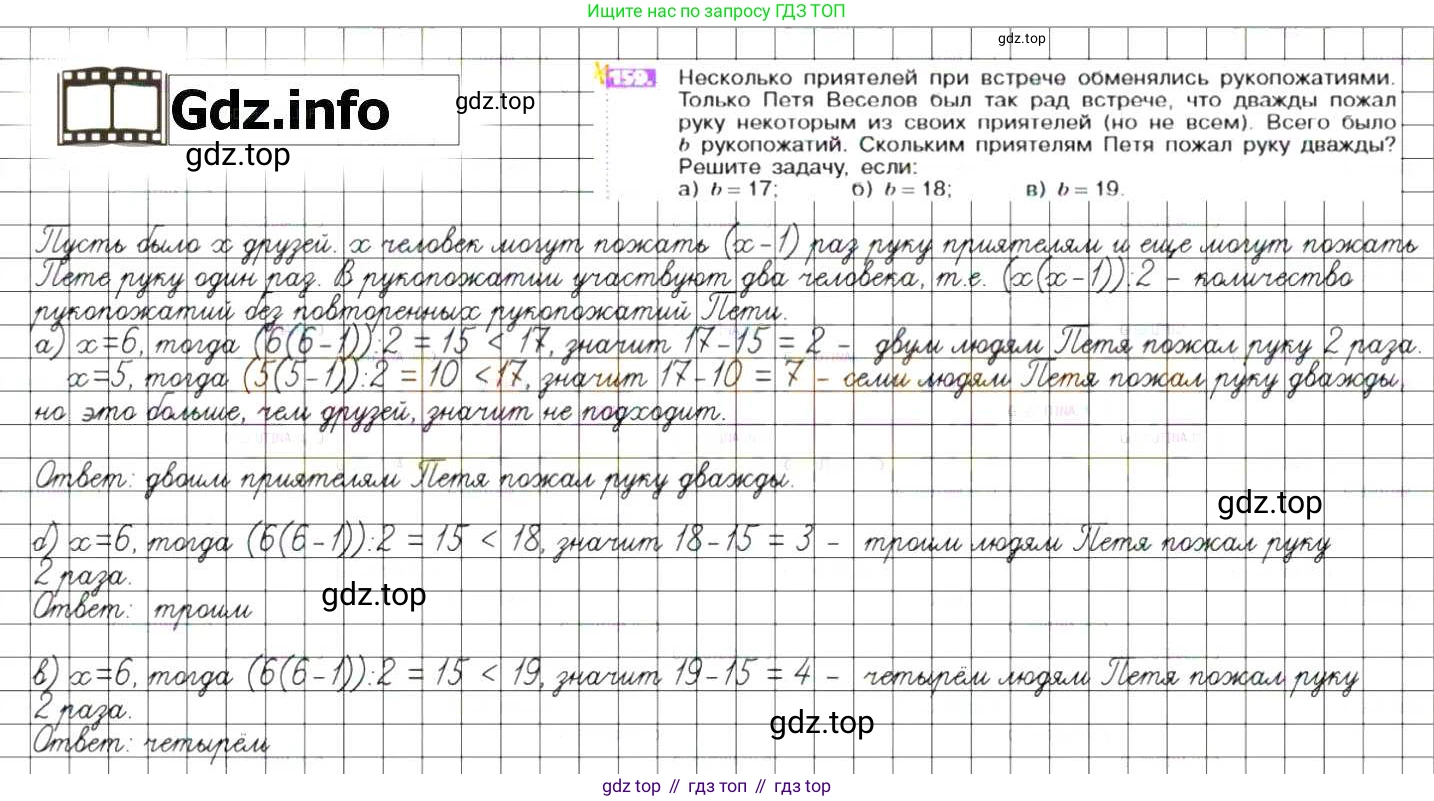 Ищите нас по запросу ГДЗ ТОП
gdz.top
Gdz.info
gdz.top
gdz.top
159. Несколько приятелей при встрече обменялись рукопожатиями.
Только Петя Веселов был так рад встрече, что дважды пожал
руку некоторым из своих приятелей (но не всем). Всего было
b рукопожатий. Скольким приятелям Петя пожал руку дважды?
Решите задачу, если:
а) b = 17; б) b = 18; в) b = 19.
Пусть было x друзей. x человек могут пожать (x-1) раз руку приятелям и еще могут пожать
Пете руку один раз. В рукопожатии участвуют два человека, т.е. (x(x-1)):2 - количество
рукопожатий без повторенных рукопожатий Пети.
а) x=6, тогда (6(6-1)):2 = 15 < 17, значит 17-15 = 2 - двум людям Петя пожал руку 2 раза.
x=5, тогда (5(5-1)):2 = 10 <17, значит 17-10 = 7 - семи людям Петя пожал руку дважды,
но это больше, чем друзей, значит не подходит.
Ответ: двоим приятелям Петя пожал руку дважды.
gdz.top
б) x=6, тогда (6(6-1)):2 = 15 < 18, значит 18-15 = 3 - троим людям Петя пожал руку
2 раза.
gdz.top
Ответ: троим
в) x=6, тогда (6(6-1)):2 = 15 < 19, значит 19-15 = 4 - четырём людям Петя пожал руку
2 раза.
gdz.top
Ответ: четырём
gdz top // гдз топ // gdz top